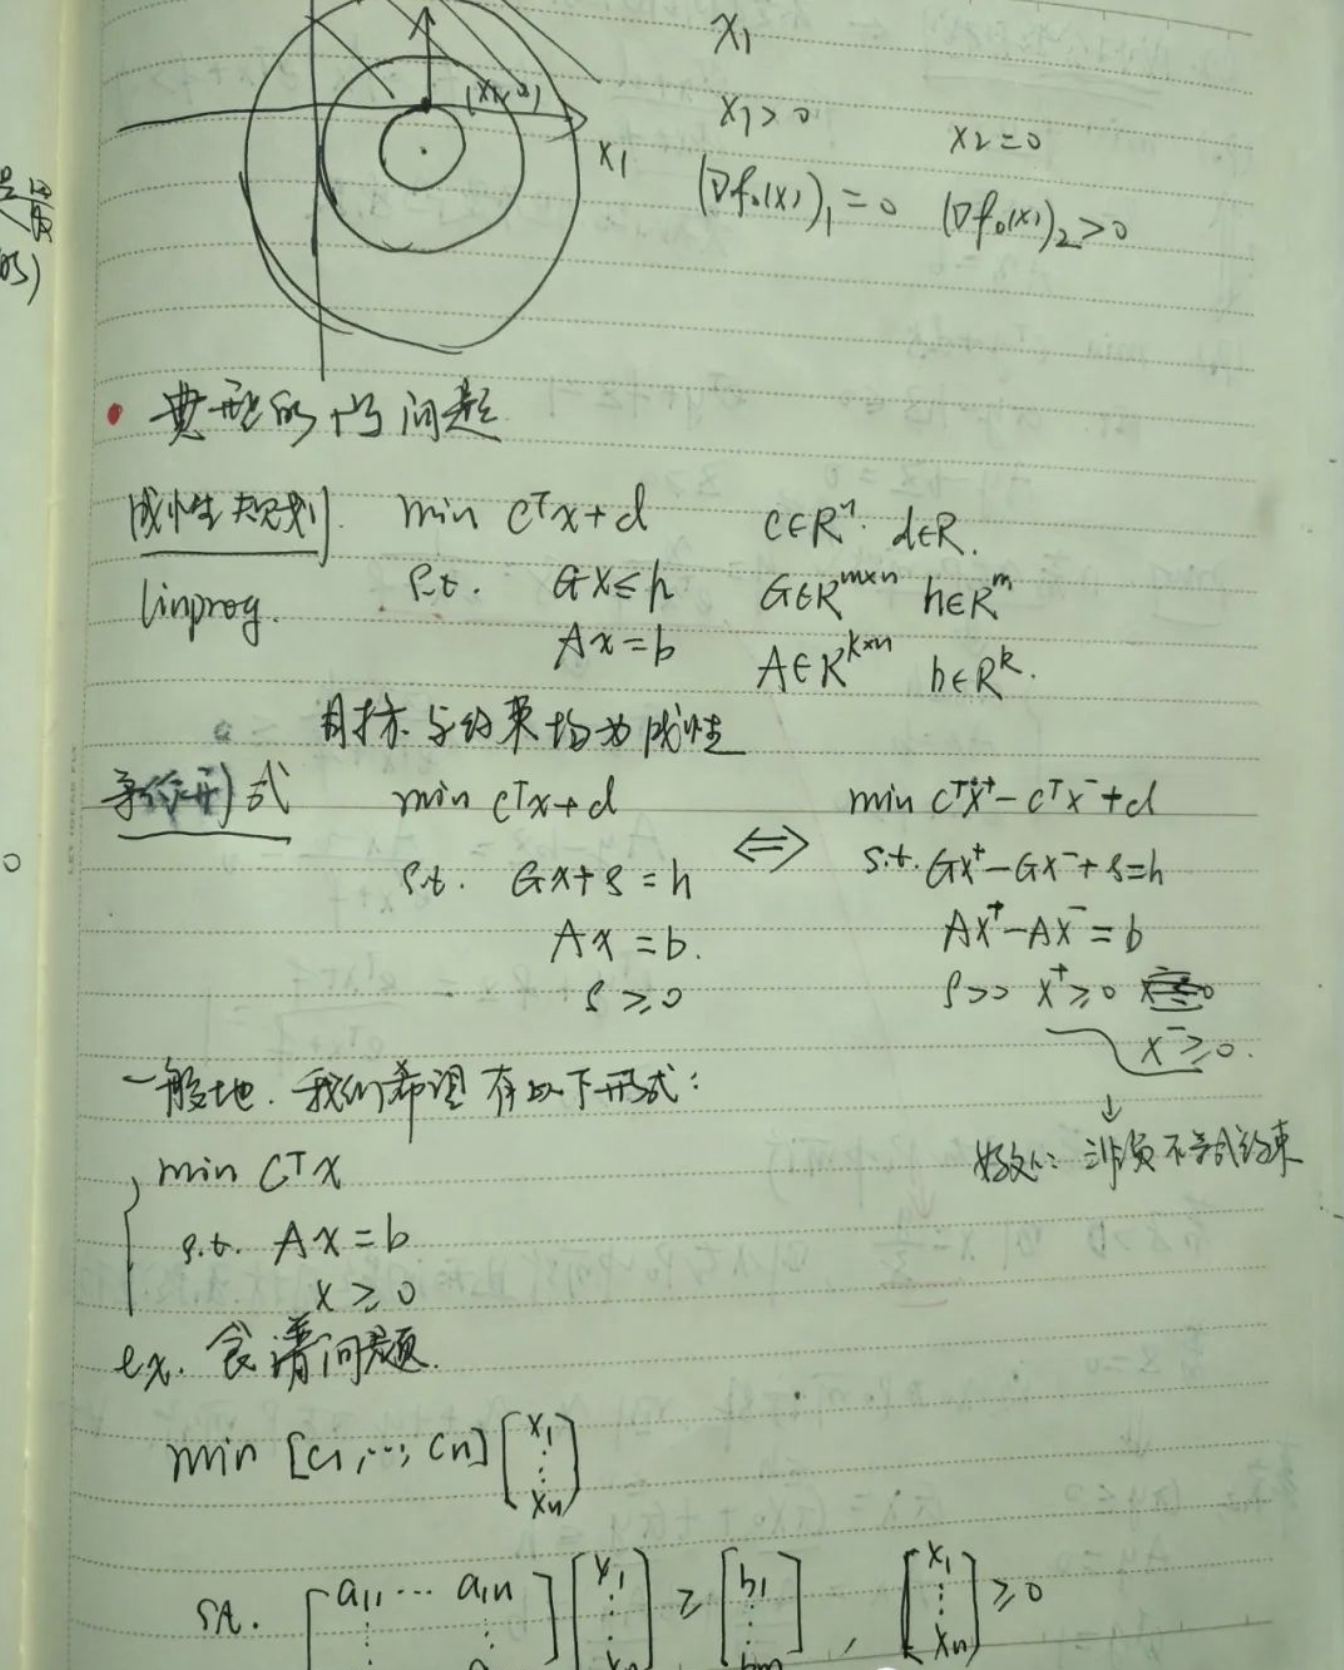 x₁
(x₁,0)
x₁
x₁>0 x₂=0
(∇f₀(x))₁=0 (∇f₀(x))₂>0
• 典型的凸问题
线性规划. min cᵀx+d c∈Rⁿ. d∈R.
linprog. s.t. Gx≤h G∈R^{m×n} h∈R^m
Ax=b A∈R^{k×n} b∈R^k.
目标与约束均为线性
等价形式 min cᵀx+d ⟺ min cᵀx⁺-cᵀx⁻+d
s.t. Gx+s=h s.t. Gx⁺-Gx⁻+s=h
Ax=b. Ax⁺-Ax⁻=b
s≥0 s≥0 x⁺≥0
x⁻≥0.
↓
一般地. 我们希望有以下形式:
非负不等式约束
min Cᵀx
s.t. Ax=b
x≥0
ex. 食谱问题.
min [c₁,…, cₙ] [x₁ ⋮ xₙ]
s.t. [a₁₁ … a₁ₙ ⋮ ⋮ ] [x₁ ⋮ xₙ] ≥ [b₁ ⋮ bm] , [x₁ ⋮ xₙ] ≥0